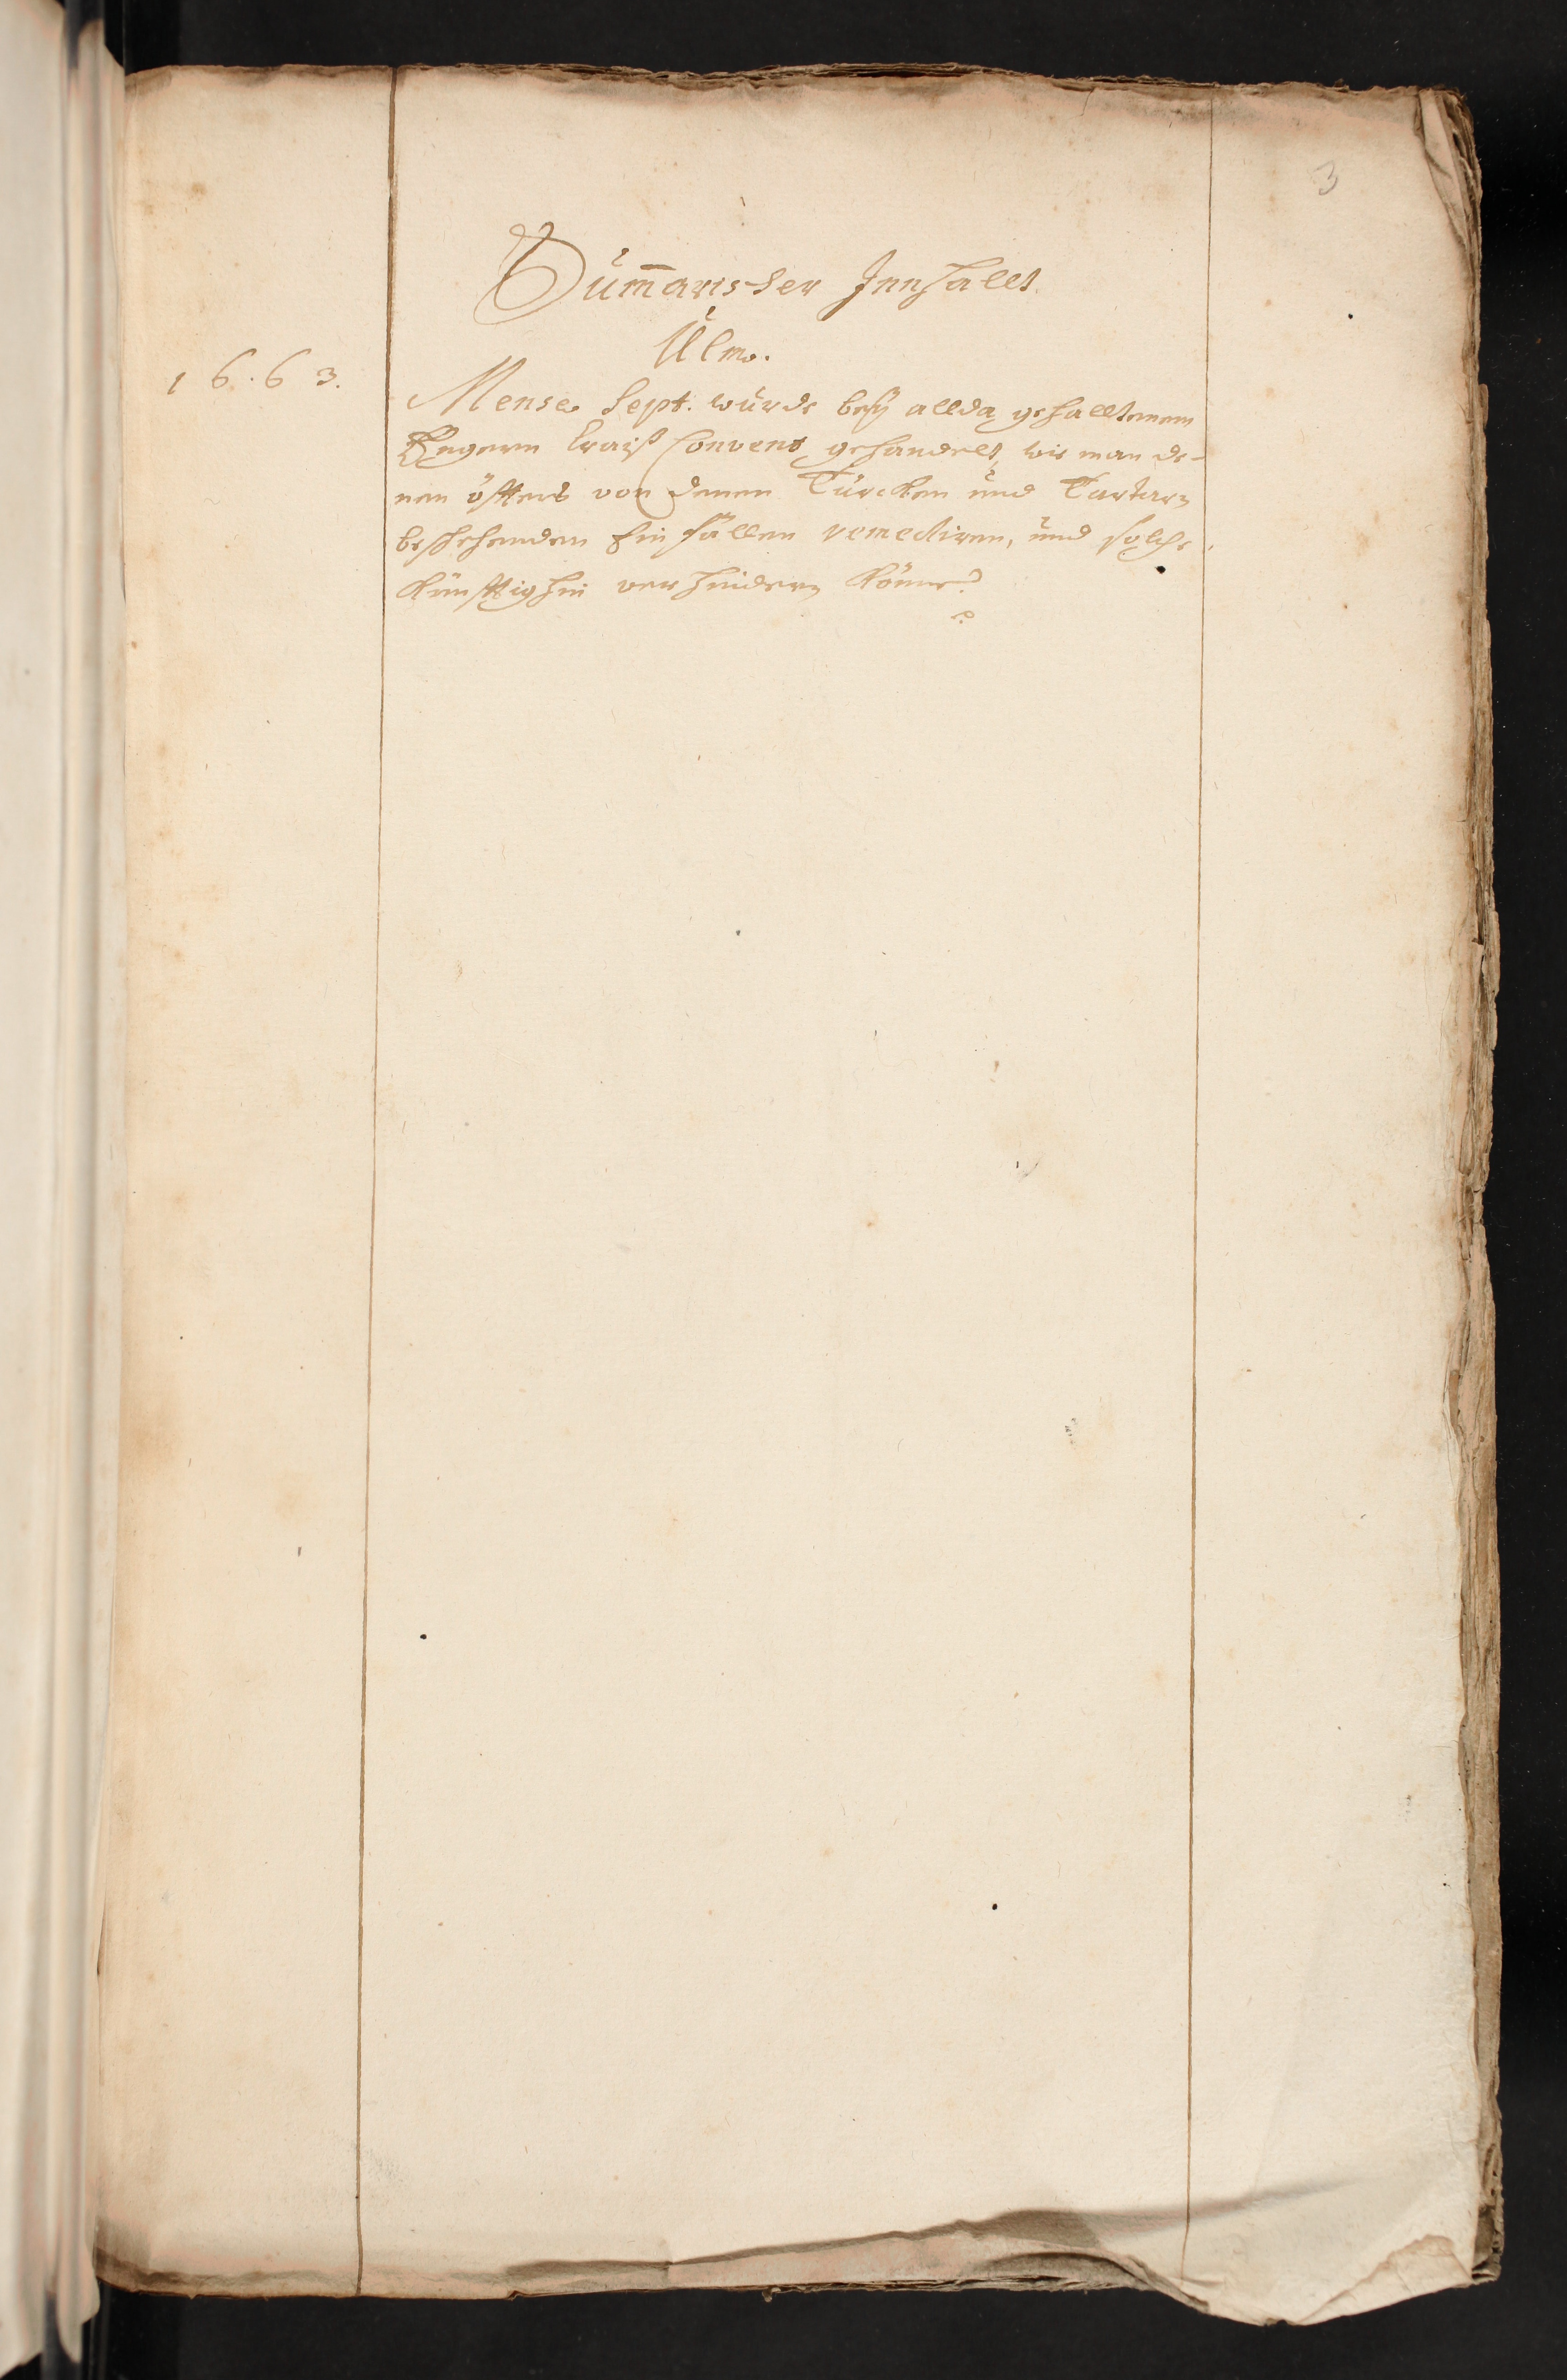 3
Sum̄arischer Innhallt
Ulm.
1663.
Mense Sept. wurde bey allda gehalltenem
Engern Craiß Convent gehandelt, wie man de-
nen öffters von denen Türcken und Tartarn
beschehenden Einfällen remediren, und solche
künfftighin verhindern könne?